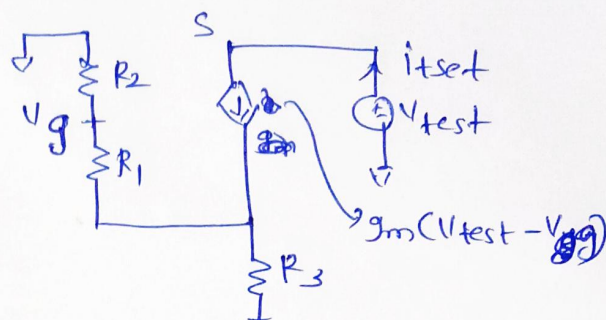 S
R2
Vg
R1
itset
Vtest
gm(Vtest-Vg)
R3